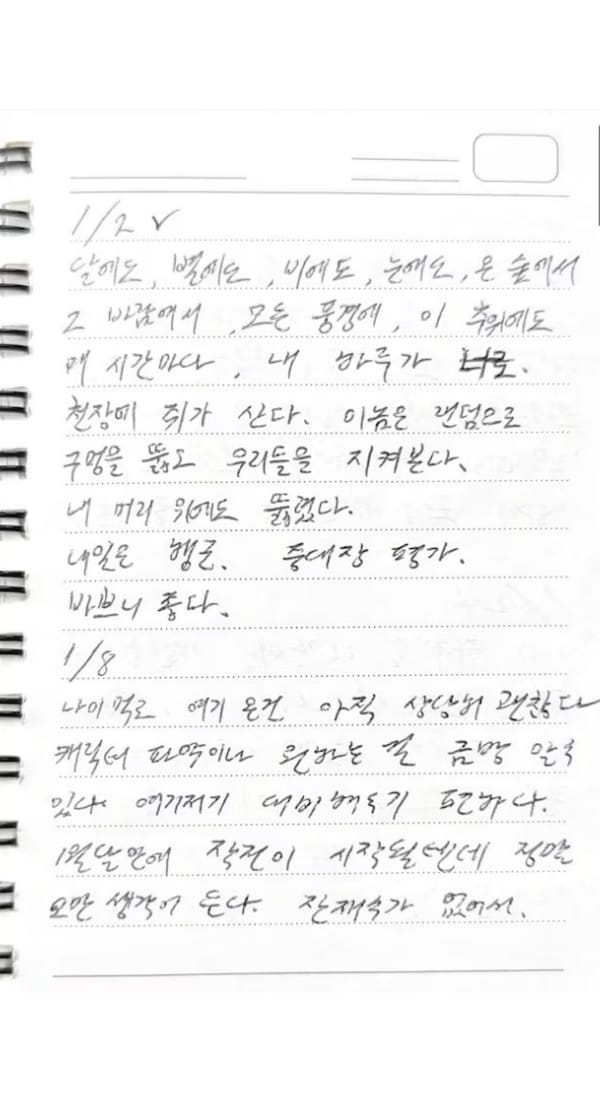 1/2 ✓
달에도, 별에도, 비에도, 눈에도, 온 숲에서
그 바람에서, 모든 풍경에, 이 추위에도
매 시간마다, 내 하루가 너로.
천장에 쥐가 산다. 이놈은 랜덤으로
구멍을 뚫고 우리들을 지켜본다.
내 머리 위에도 뚫렸다.
내일은 행군. 중대장 평가.
바쁘니 좋다.
1/8
나이먹고 여기 온건 아직 상당히 괜찮다
캐릭터 파악이나 원하는 걸 금방 알 수
있다. 여기저기 대비해두기 편하다.
1월달 안에 작전이 시작될텐데 정말
오만 생각이 든다. 잔재주가 없어서.